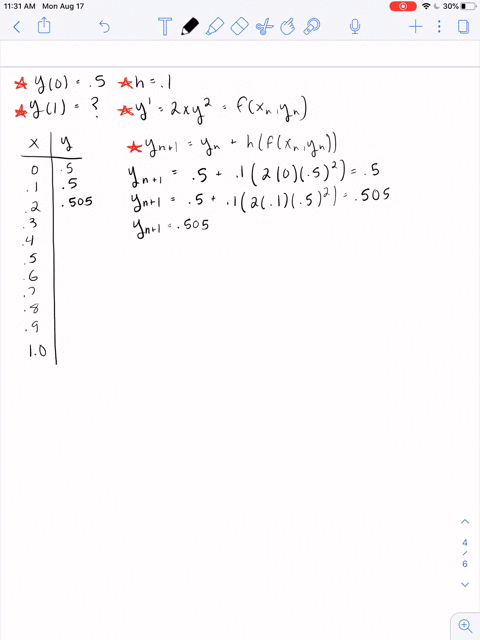 11:31 AM Mon Aug 17
30%
y(0) = .5 h = .1
y(1) = ? y' = 2xy² = f(xₙ, yₙ)
x y
yₙ₊₁ = yₙ + h(f(xₙ, yₙ))
0 .5
yₙ₊₁ = .5 + .1(2(0)(.5)²) = .5
.1 .5
yₙ₊₁ = .5 + .1(2(.1)(.5)²) = .505
.2 .505
yₙ₊₁ = .505
.3
.4
.5
.6
.7
.8
.9
1.0
4
/
6